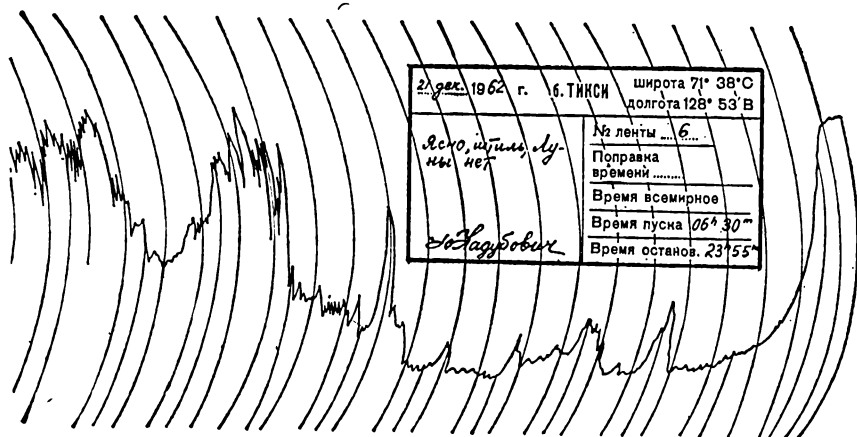 21 дек. 1962 г. б. ТИКСИ
широта 71° 38°С
долгота 128° 53′В
Ясно, штиль, Лу-
ны нет
Ю Надубович
№ ленты 6
Поправка
времени ........
Время всемирное
Время пуска 06ʰ 30ᵐ
Время останов. 23ʰ55ᵐ